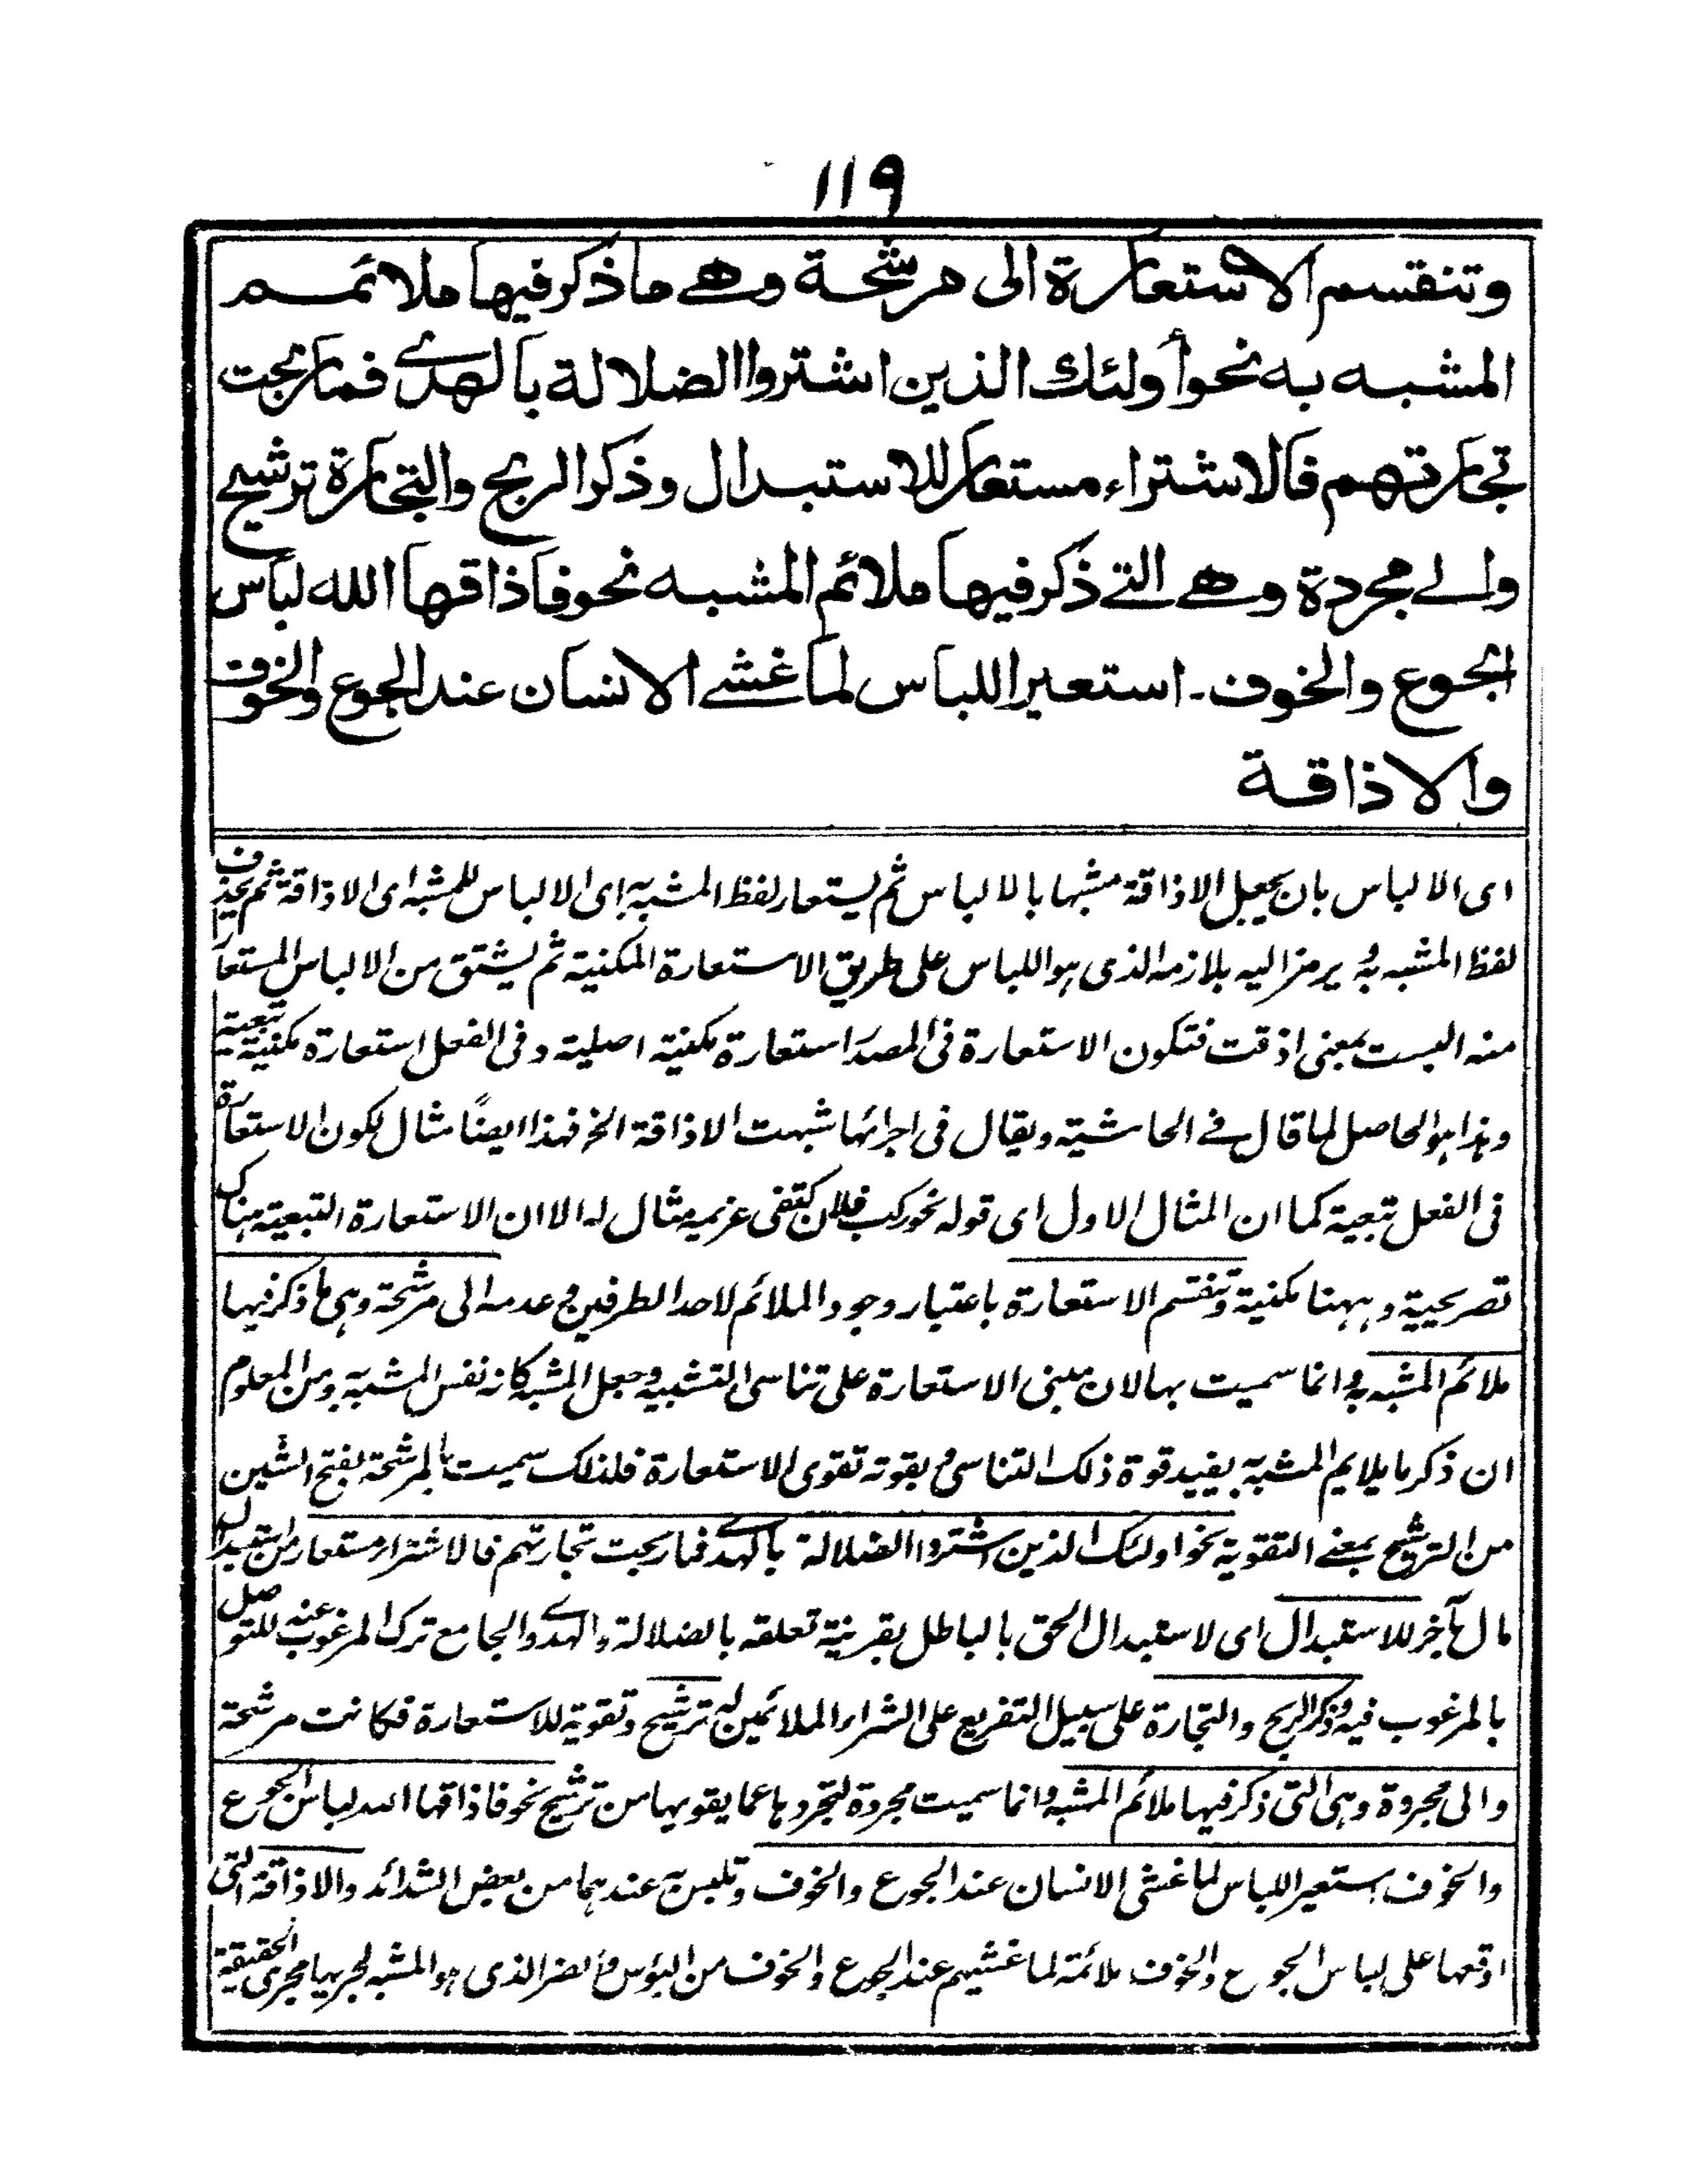 ۱۱۹
وتنقسم الاستعارة الى مرشحة وهي ما ذكر فيها ملائم
المشبه به نحو أولئك الذين اشتروا الضلالة بالهدى فما ربحت
تجارتهم فالاشتراء مستعار للاستبدال وذكر الربح والتجارة ترشيح
والى مجردة وهي التي ذكر فيها ملائم المشبه نحو فاذاقها الله لباس
الجوع والخوف۔ استعير اللباس لما غشي الانسان عند الجوع والخوف
والاذاقة
اى الالباس بان يجعل الاذاقة مشبها بالالباس ثم يستعار لفظ المشبه به اى الالباس للمشبه اى الاذاقة ثم يحذف
لفظ المشبه به ويرمز اليه بلازمه الذى هو اللباس على طريق الاستعارة المكنية ثم يشتق من الالباس المستعار
منه البست بمعنى اذقت فتكون الاستعارة فى المصدر استعارة مكنية اصلية وفى الفعل استعارة مكنية تبعية
وهذا هو الحاصل لما قال فى الحاشية ويقال فى اجرائها شبهت الاذاقة الخ فهذا ايضًا مثال لكون الاستعارة
فى الفعل تبعية كما ان المثال الاول اى قوله نحو ركب فلان كتفى غريمه مثال له الا ان الاستعارة التبعية هناك
تصريحية وههنا مكنية وتنقسم الاستعارة باعتبار وجود الملائم لاحد الطرفين وعدمه الى مرشحة وهى ما ذكر فيها
ملائم المشبه به وانما سميت بها لان مبنى الاستعارة على تناسى التشبيه وجعل المشبه كانه نفس المشبه به ومن المعلوم
ان ذكر ما يلايم المشبه به يفيد قوة ذلك التناسى وبقوته تقوى الاستعارة فلذلك سميت بالمرشحة بفتح الشين
من الترشيح بمعنى التقوية نحو اولئك الذين اشتروا الضلالة بالهدى فما ربحت تجارتهم فالاشتراء مستعار من استبدال
مال بآخر للاستبدال اى لاستبدال الحق بالباطل بقرينة تعلقه بالضلالة والهدى والجامع ترك المرغوب عنه للتوصل
بالمرغوب فيه وذكر الربح والتجارة على سبيل التفريع على الشراء الملائمين له ترشيح وتقوية للاستعارة فكانت مرشحة
والى مجردة وهى التى ذكر فيها ملائم المشبه وانما سميت مجردة لتجردها عما يقويها من ترشيح نحو فاذاقها الله لباس الجوع
والخوف استعير اللباس لما غشى الانسان عند الجوع والخوف وتلبس به عندهما من بعض الشدائد والاذاقة التى
اوقعها على لباس الجوع والخوف ملائمة لما غشيهم عند الجوع والخوف من البؤس والضر الذى هو المشبه لجريها مجرى الحقيقة